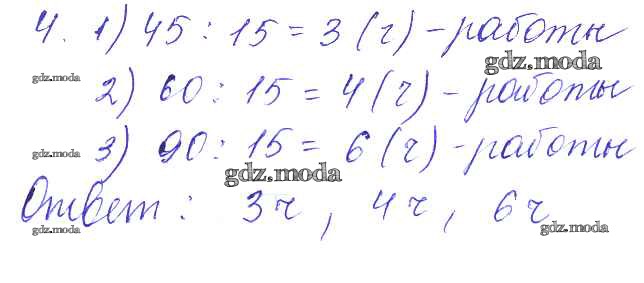 4. 1) 45 : 15 = 3 (ч) - работы
gdz.moda
gdz.moda
2) 60 : 15 = 4 (ч) - работы
3) 90 : 15 = 6 (ч) - работы
gdz.moda
gdz.moda
Ответ : 3 ч , 4 ч , 6 ч
gdz.moda
gdz.moda